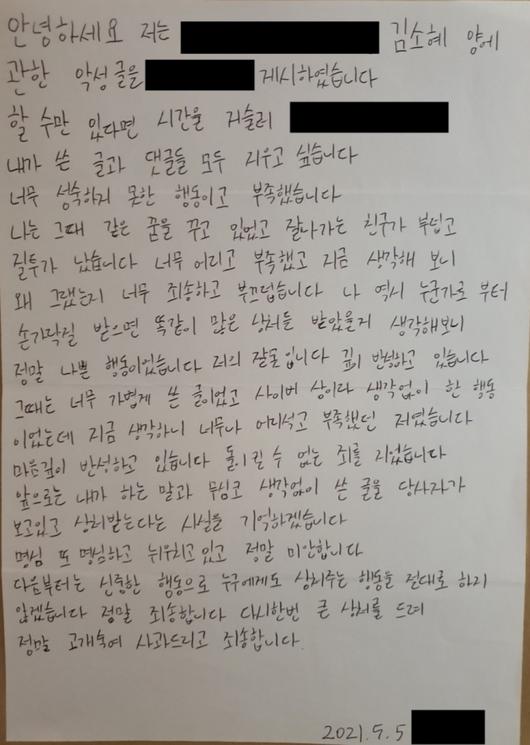 안녕하세요 저는 김소혜 양에
관한 악성글을 게시하였습니다
할 수만 있다면 시간을 거슬러
내가 쓴 글과 댓글들 모두 지우고 싶습니다
너무 성숙하지 못한 행동이고 부족했습니다
나는 그때 같은 꿈을 꾸고 있었고 잘나가는 친구가 부럽고
질투가 났습니다 너무 어리고 부족했고 지금 생각해 보니
왜 그랬는지 너무 죄송하고 부끄럽습니다 나 역시 누군가로 부터
손가락질 받으면 똑같이 많은 상처를 받았을거 생각해보니
정말 나쁜 행동이었습니다 저의 잘못입니다 깊이 반성하고 있습니다
그때는 너무 가볍게 쓴 글이었고 사이버 상이라 생각없이 한 행동
이었는데 지금 생각하니 너무나 어리석고 부족했던 저였습니다
마음깊이 반성하고 있습니다 돌이킬 수 없는 죄를 지었습니다
앞으로는 내가 하는 말과 무심코 생각없이 쓴 글을 당사자가
보고있고 상처받는다는 사실을 기억하겠습니다
명심 또 명심하고 뉘우치고 있고 정말 미안합니다
다음부터는 신중한 행동으로 누구에게도 상처주는 행동을 절대로 하지
않겠습니다 정말 죄송합니다 다시한번 큰 상처를 드려
정말 고개숙여 사과드리고 죄송합니다.
2021.5.5